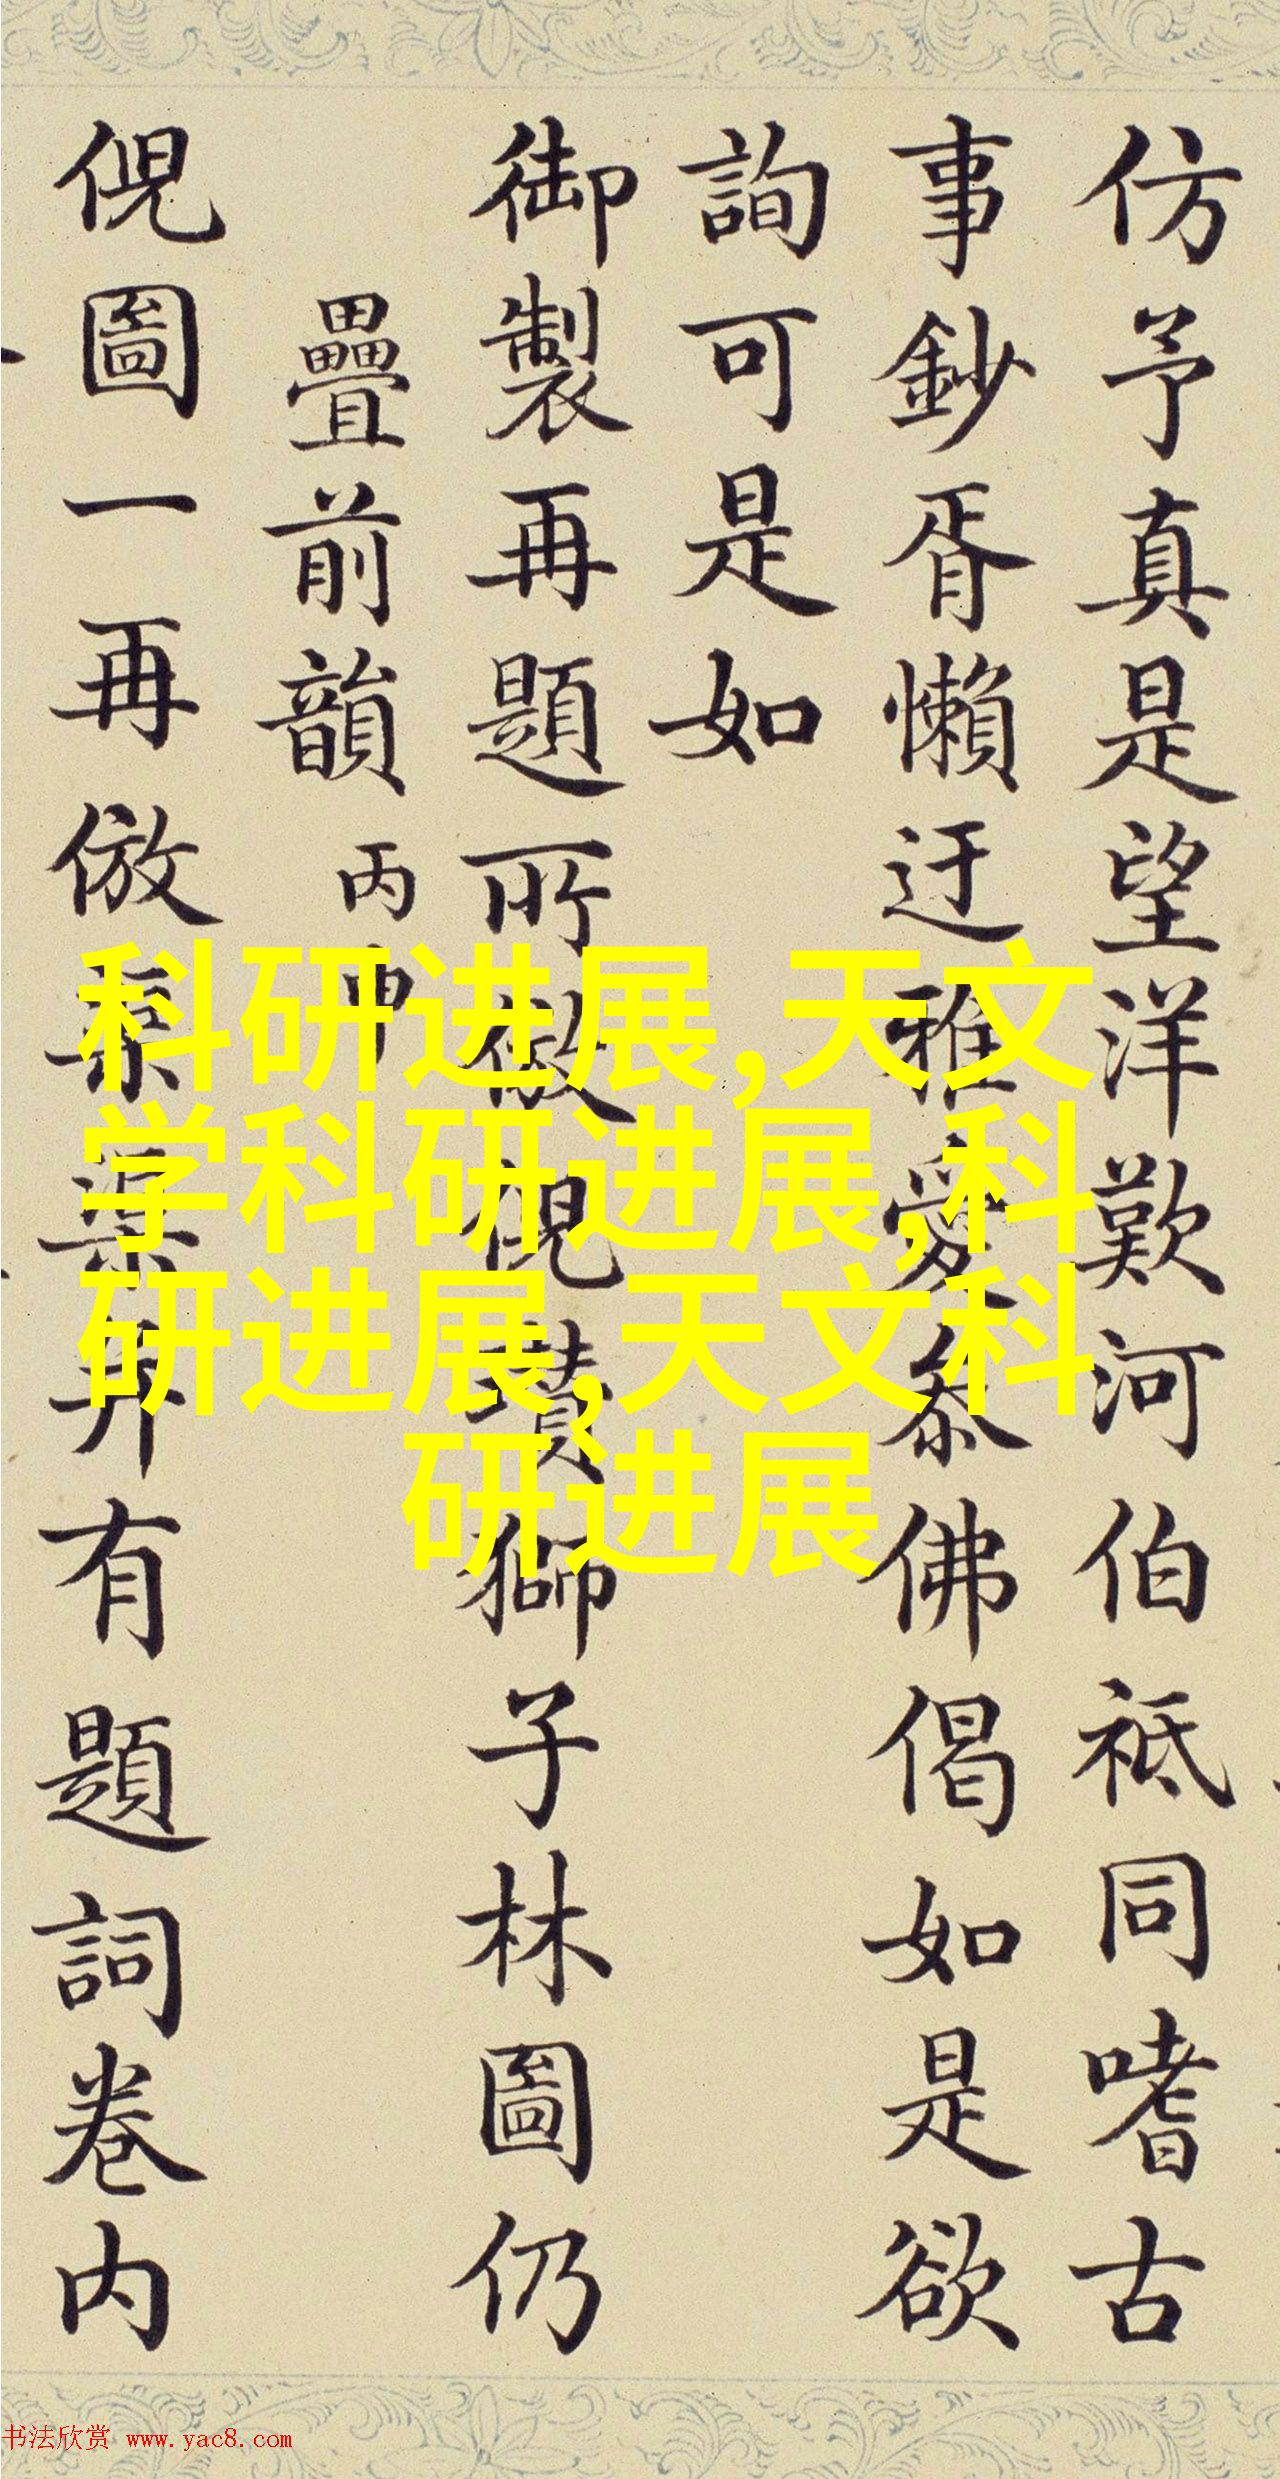 仿予真是望洋歎河伯祗同嗜古
事鈔胥懶迂雅愛叅佛偈如是欲
詢可是如
御製再題所倣倪瓚獅子林圖仍
疊前韻 丙申
倪圖一再倣渠弆有題詞卷内
科研进展,天文
学科研进展,科
研进展,天文科
研进展
书法欣赏 www.yac8.com